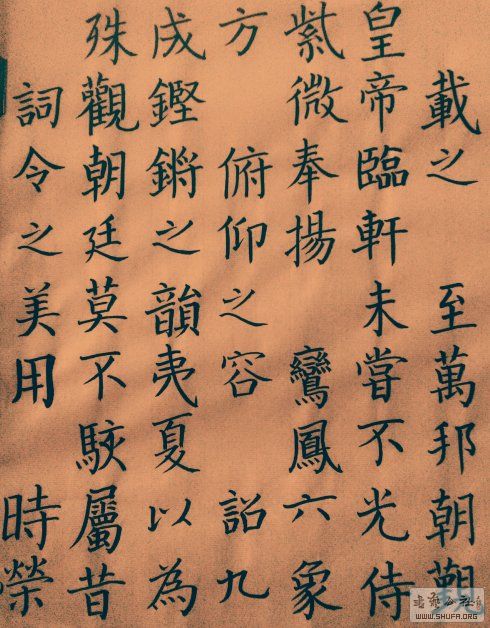 載之 至萬邦朝覲
皇帝臨軒未嘗不光侍
紫微奉揚 鸞鳳六象
方 俯仰之容 詔九
成鏗鏘之韻夷夏以為
殊觀朝廷莫不駭屬昔
詞令之美用 時榮
WWW.SHUFA.ORG